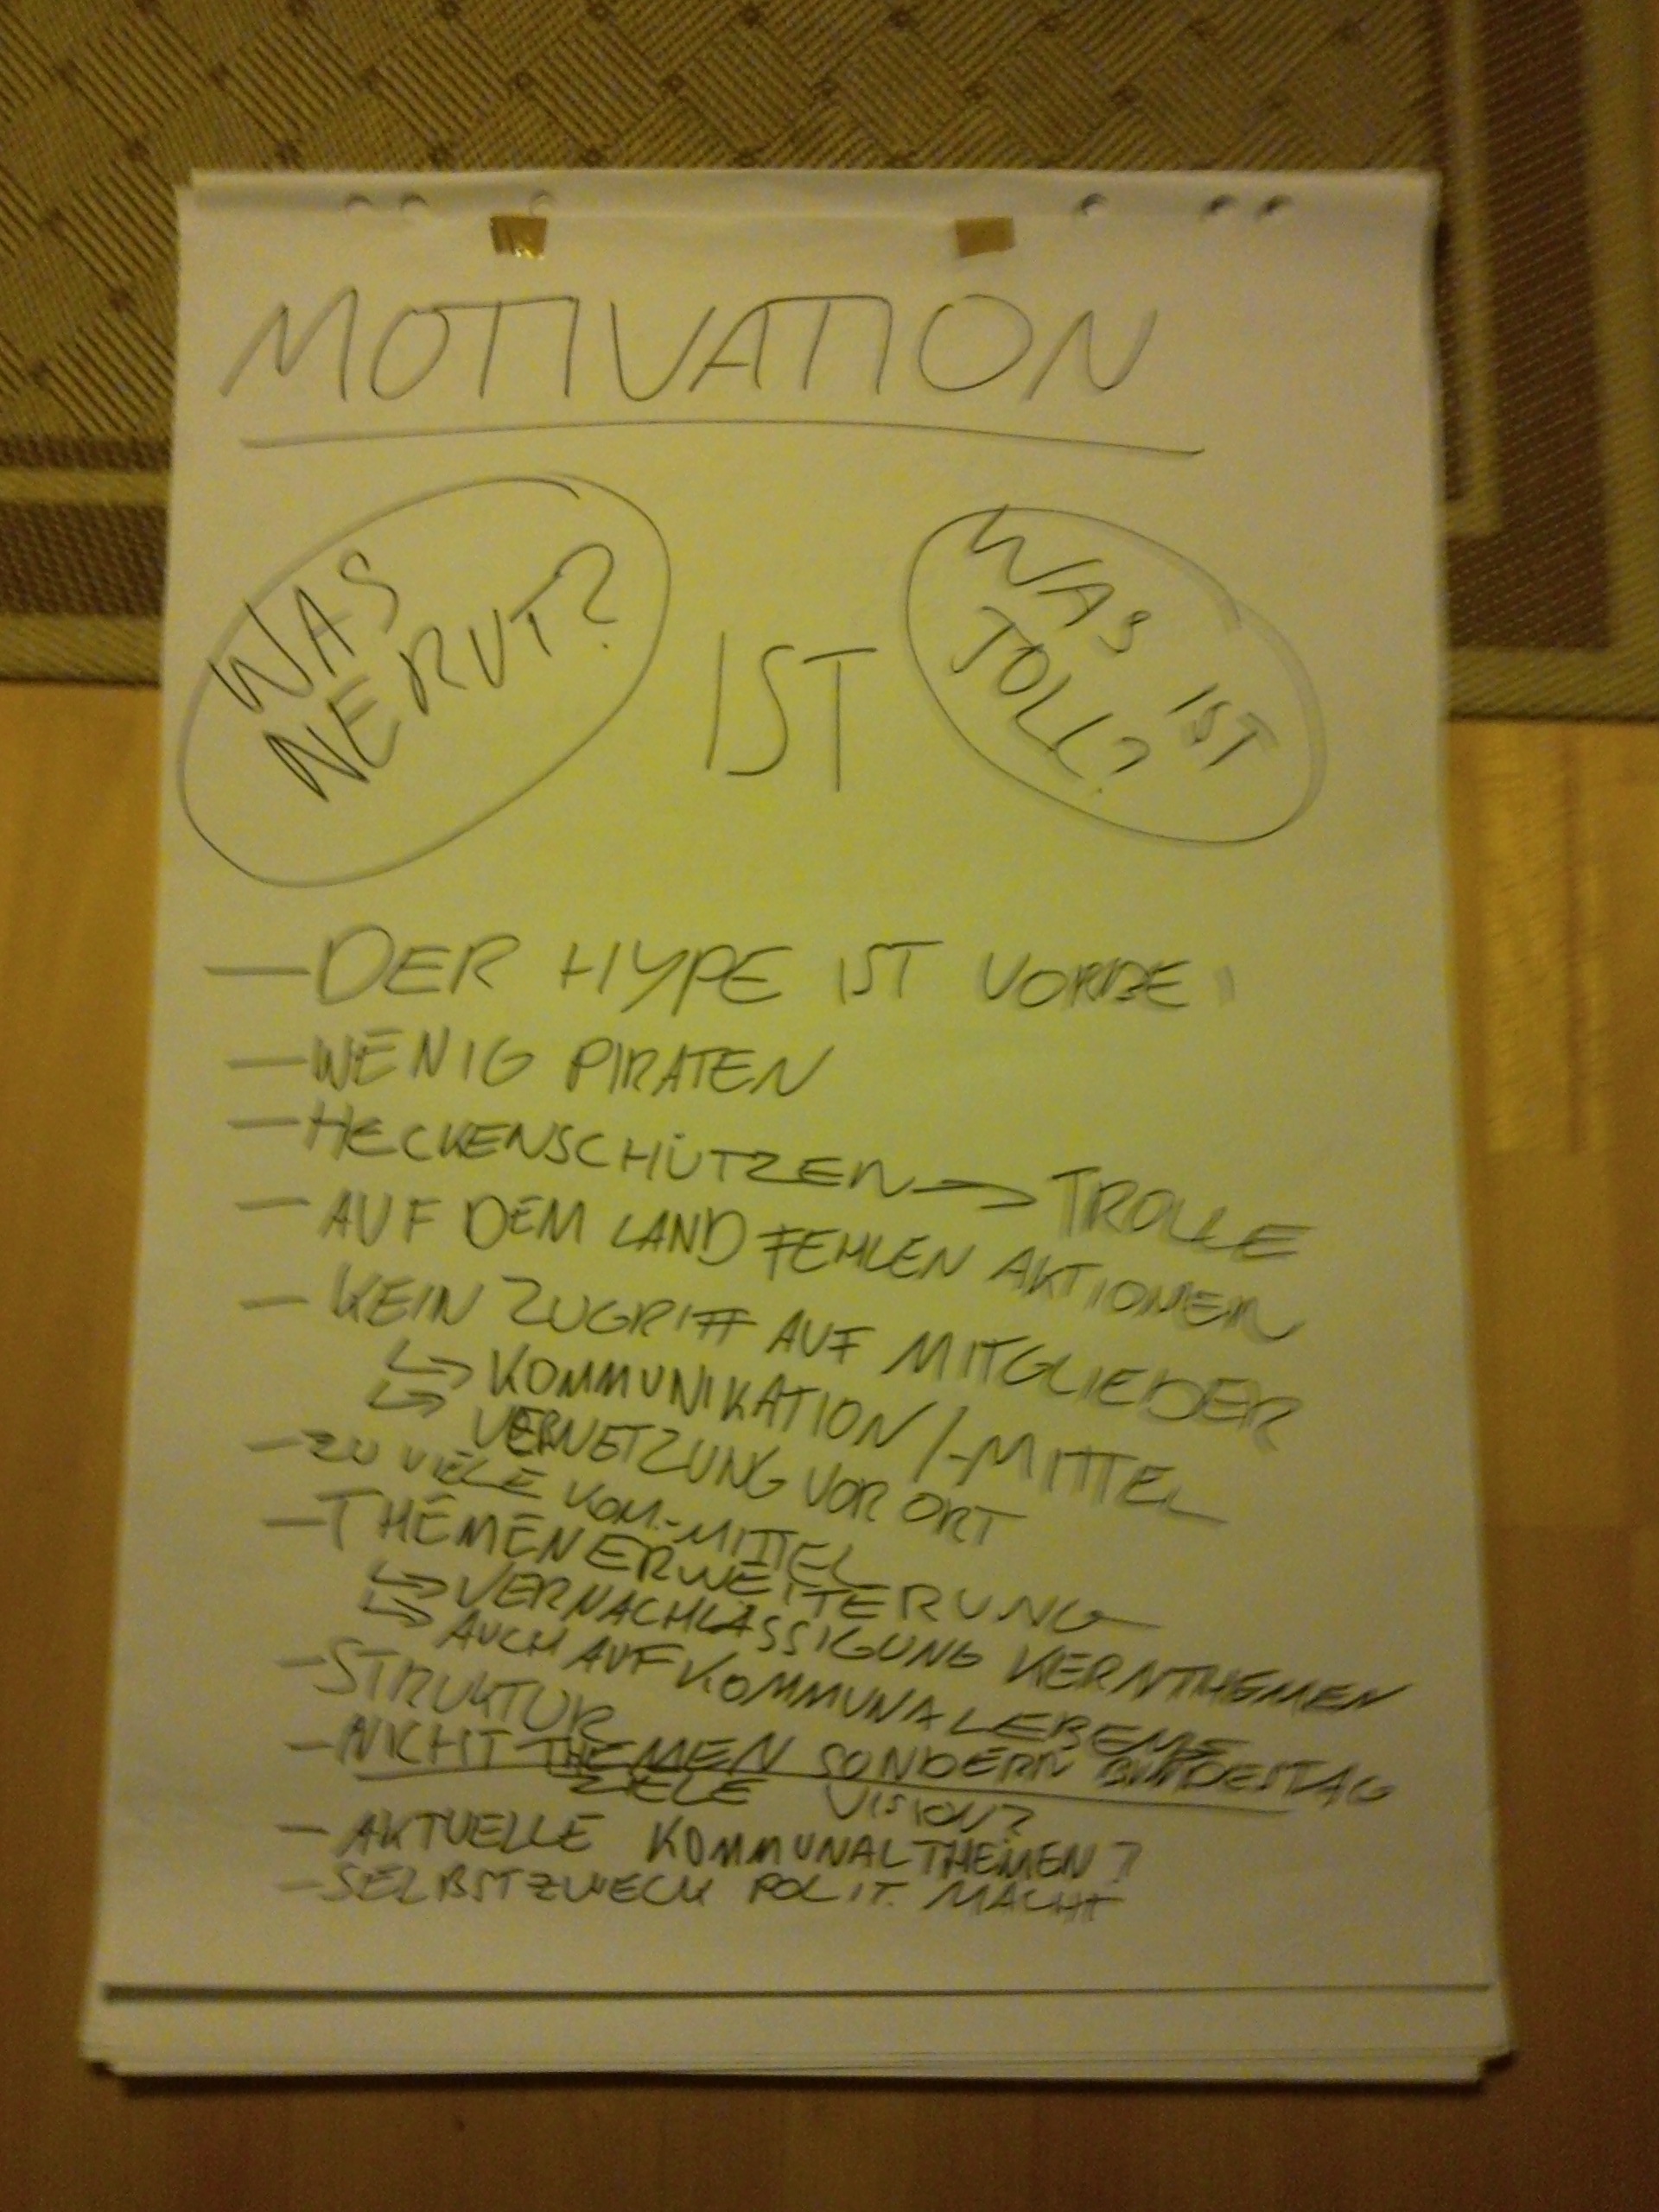 MOTIVATION
WAS
NERVT?
IST
WAS IST
TOLL?
— DER HYPE IST VORBEI
— WENIG PIRATEN
— HECKENSCHÜTZEN → TROLLE
— AUF DEM LAND FEHLEN AKTIONEN
— KEIN ZUGRIFF AUF MITGLIEDER
↳ KOMMUNIKATION/-MITTEL
↳ VERNETZUNG VOR ORT
— ZU VIELE KOM.-MITTEL
— THEMENERWEITERUNG
↳ VERNACHLÄSSIGUNG KERNTHEMEN
↳ AUCH AUF KOMMUNALEBENE
— STRUKTUR
— NICHT THEMEN SONDERN BUNDESTAG
ZIELE VISION?
— AKTUELLE KOMMUNALTHEMEN?
— SELBSTZWECK POLIT. MACHT